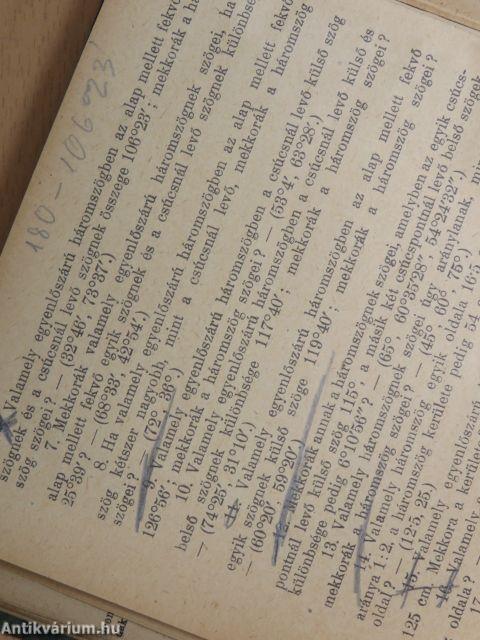 180-106°23'
Valamely egyenlőszárú háromszögben az alap mellett fekvő
szögnek és a csúcsnál levő szögnek összege 106°23′; mekkorák a há
szög szögei? — (32°46′, 73°37′.)
7. Mekkorák valamely egyenlőszárú háromszögnek szögei, ha
alap mellett fekvő egyik szögnek és a csúcsnál levő szögnek különbsé
25°39′? — (68°33′, 42°54′.)
8. Ha valamely egyenlőszárú háromszögben az alap mellett fekvő
szög kétszer nagyobb, mint a csúcsnál levő, mekkorák a háromszög
szögei? — (72°, 36°.)
9. Valamely egyenlőszárú háromszögben a csúcsnál levő külső szög
126°56′; mekkorák a háromszög szögei? — (53°4′, 63°28′.)
10. Valamely egyenlőszárú háromszögben a csúcsnál levő külső és
belső szögnek különbsége 117°40′; mekkorák a háromszög szögei?
— (74°25′, 31°10′.)
11. Valamely egyenlőszárú háromszögben az alap mellett fekvő
egyik szögnek külső szöge 119°40′; mekkorák a háromszög szögei?
— (60°20′, 59°20′.)
12. Mekkorák annak a háromszögnek szögei, amelyben az egyik csúcs-
pontnál levő külső szög 115°, a másik két csúcspontnál levő belső szögek
különbsége pedig 6°10′56″? — (65°, 60°35′28″, 54°24′32″.)
13. Valamely háromszögnek szögei úgy aránylanak,
mekkorák a háromszög szögei? — (45°, 60°, 75°.)
14. Valamely háromszög egyik oldala 16·5
aránya 1:2, a háromszög kerülete pedig 54
oldal? — (12·5, 25.)
15. Valamely egyenlőszárú
25 cm. Mekkora a kerülete
16. Valamely
oldala? —
Antikvárium.hu